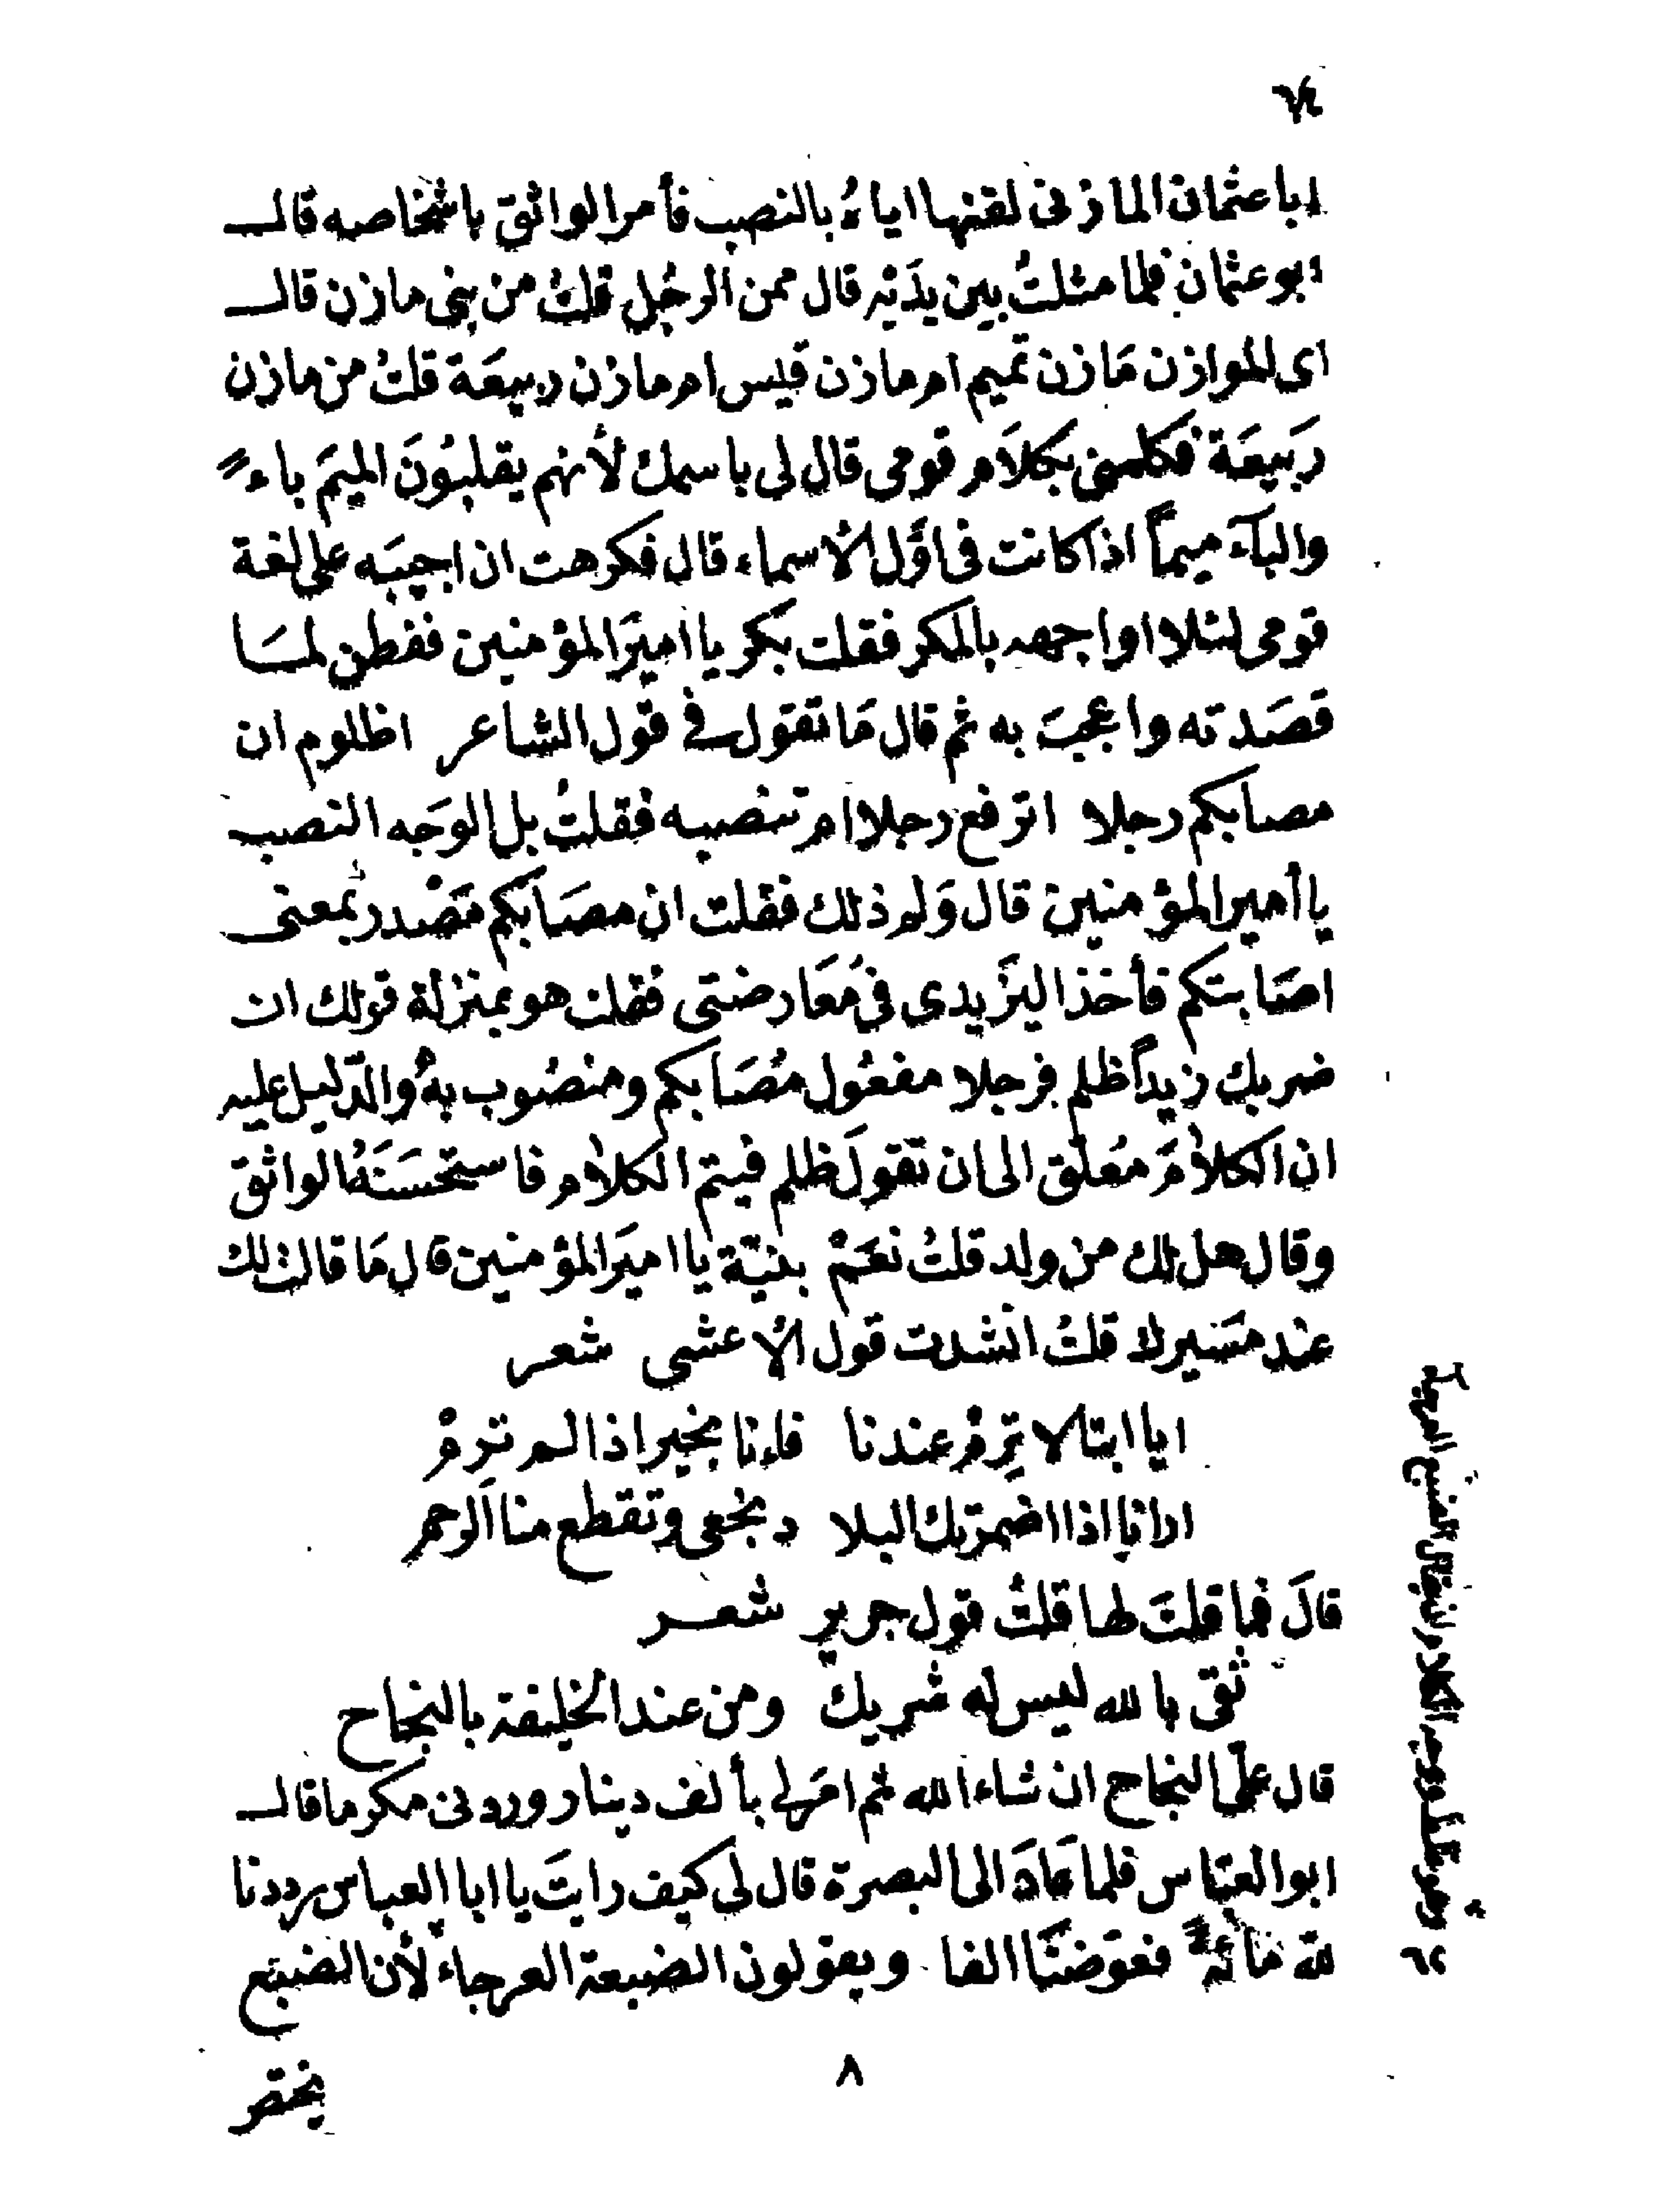 ٦٤
ابا عثمان المازنى لقنها اياهُ بالنصب فأمر الواثق باشخاصه قال
ابو عثمان فلما مثلتُ بين يدَيْه قال ممن الرجُل قلتُ من بنى مازن قال
اى الموازن مَازن تميم ام مازن قيس ام مازن ربيعَة قلتُ من مازن
رَبيعَة فكلمنى بكلَام قومى قال لى باسمك لأنهم يقلبُونَ الميمَ باءً
والبآءَ ميماً اذا كانت فى اوَّل الأسماء قال فكرهت ان اجيبَه على لغة
قومى لئلا اواجهه بالمكر فقلت بكر يا اميرَ المؤمنين ففطن لمَا
قصَدته واعجبَ به ثم قال مَا تقول فى قول الشاعر اظلوم ان
مصابكم رجلا اترفع رجلا ام تنصبه فقلتُ بل الوجَه النصب
يا أمير المؤمنين قال وَلم ذلك فقلت ان مصَابكم مَصْدر بمعنى
اصَابتكم فأخذ اليَزيدى فى مُعَارضتى فقلت هو بمنزلة قولك ان
ضربك زيداً ظلم فرجلا مفعُول مُصَابكم ومنصُوب بهُ والدّليل عليه
ان الكلامَ مُعلق الى ان تقولَ ظلم فيتم الكلام فاستحسَنَهُ الواثق
وقال هل لك من ولد قلتُ نعَمْ بنيّة يا اميَر المؤمنين قال مَا قالت لك
عند مَسيرك قلتُ انشدت قول الأعشى شعر
ايا ابتا لا تَرِمْ عندنا فإنا بخير اذا لم ترِمْ
ارانا اذا اضمرتك البلا د نجفى وتقطع منا الرحم
قالَ فما قلتَ لها قلتُ قول جرير شعر
ثقى بالله ليس له شريك ومن عند الخليفة بالنجاح
قال علىّ النجاح ان شاء الله ثم امَر لى بألف دينار وردنى مكرما قال
ابو العبّاس فلما عَادَ الى البصرة قال لى كيف رايتَ يا ابا العباس رددنا
لله مائةً فعوّضنَا الفا ويقولون الضبعة العرجاء لأن الضبع
٨
يختص
٦٢